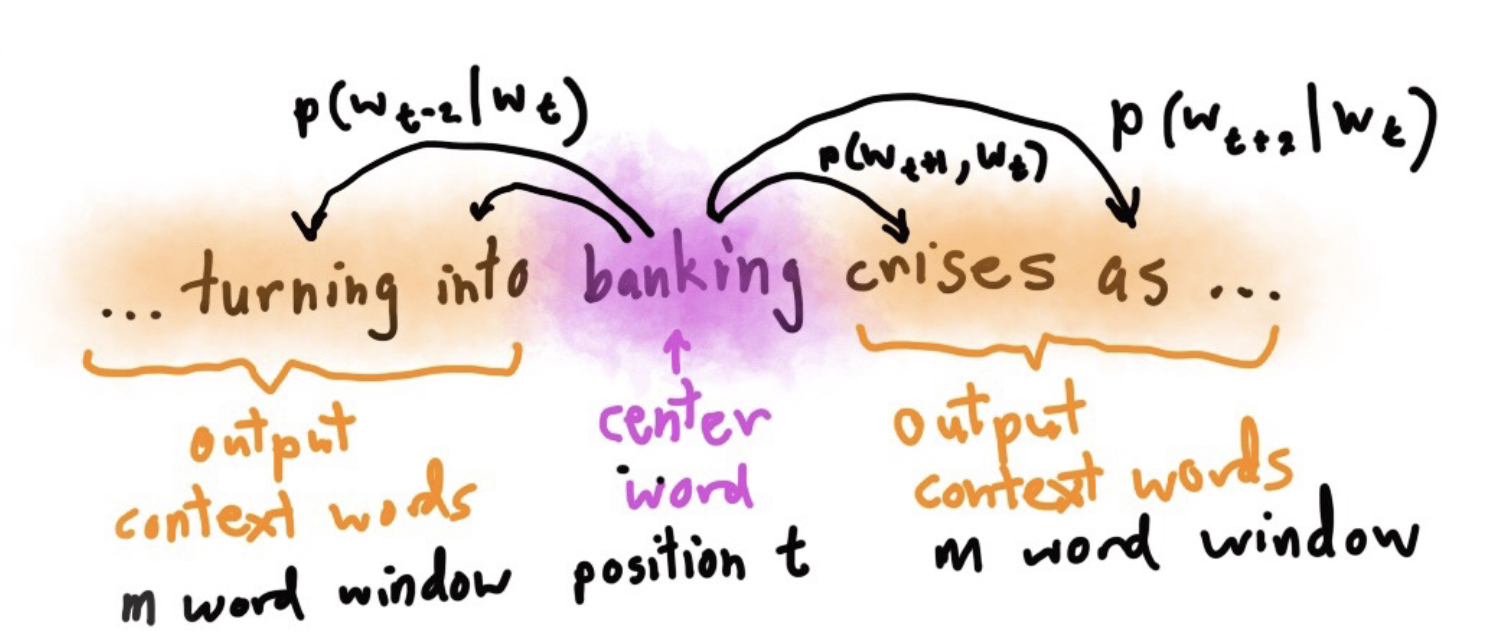 p(w_{t-2}|w_t)
p(w_{t+1},w_t)
p(w_{t+2}|w_t)
... turning into banking crises as ...
output
context wods
m word window
center
word
position t
output
context words
m word window